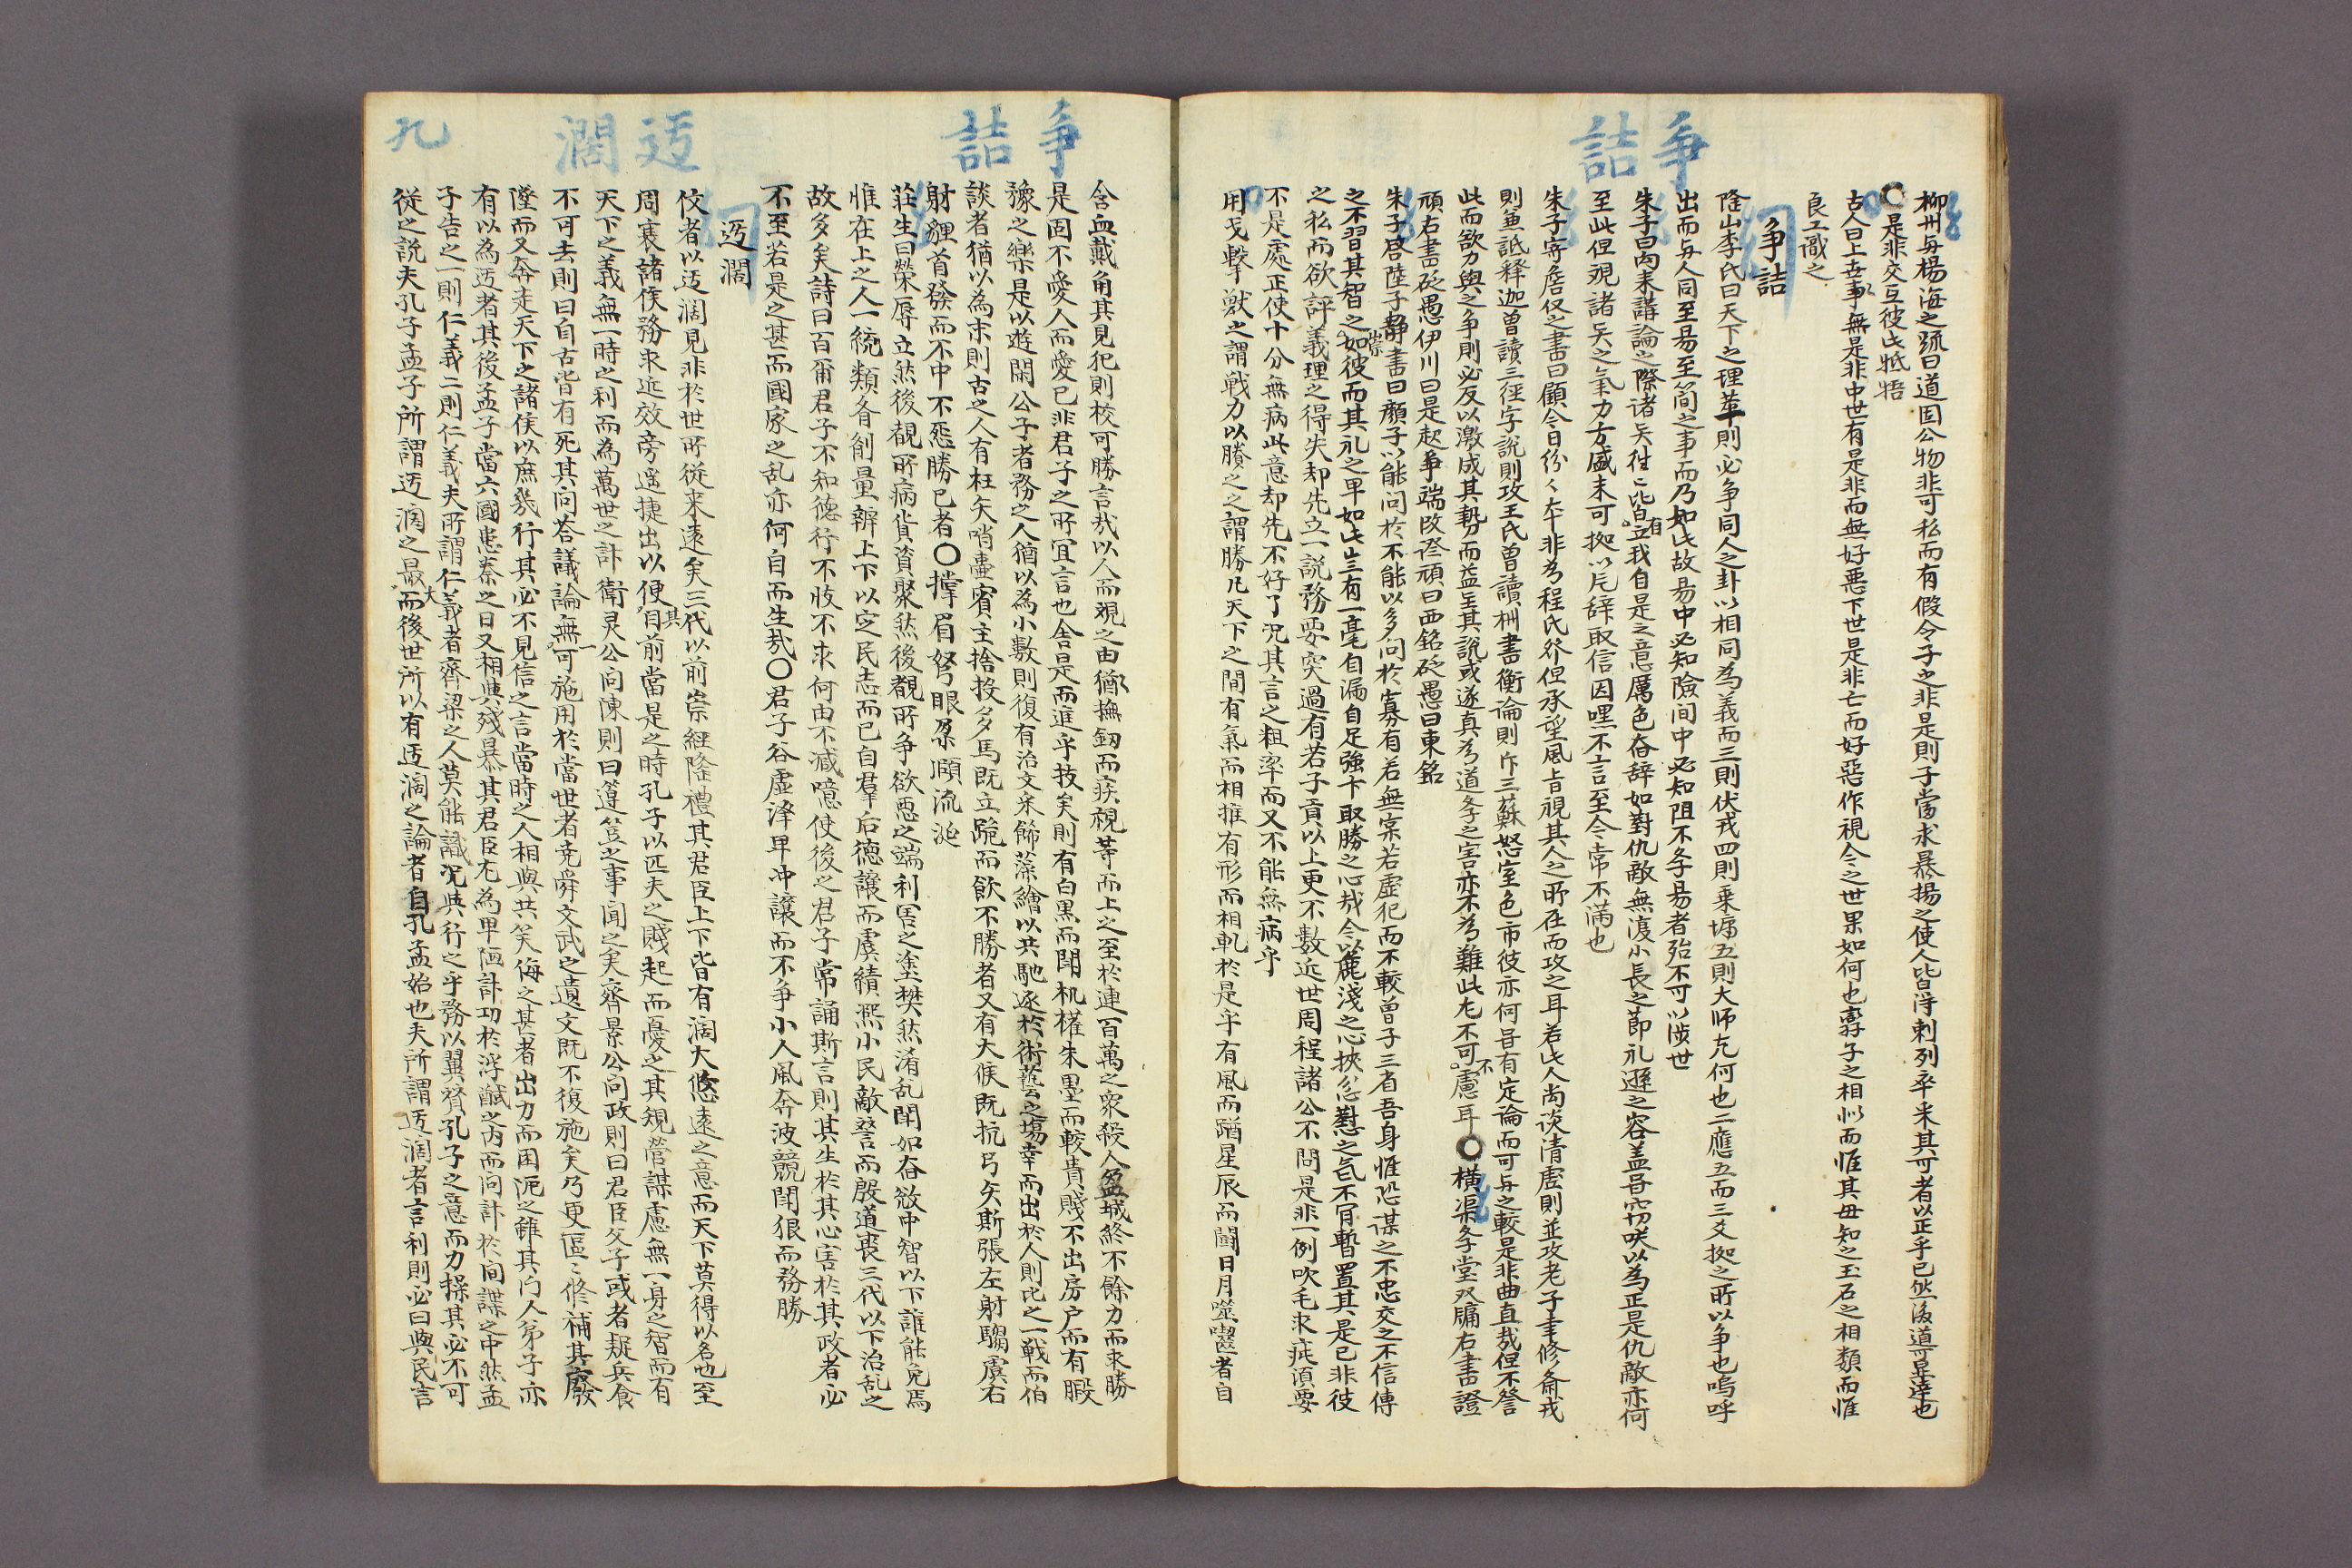 争詰
柳州与楊海之䟽曰道固公物非可私而有假令子之非是則子當求暴揚之使人皆得刺列卒采其可者以正乎己然後道可显達也
○是非交互彼此牴牾
古人曰上世事無是非中世有是非而無好悪下世是非亡而好惡作視今之世果如何也孿子之相似而惟其母知之玉石之相類而惟
良工識之
争詰
隆山李氏曰天下之理革則必争同人之卦以相同為義而三則伏戎四則乗墉五則大师克何也二應五而三爻㨿之所以争也嗚呼
出而与人同至易至简之事而乃如此故易中必知險间中必知阻不孝易者殆不可以涉世
朱子曰向来講論之際诸矣往〻皆有立我自是之意厲色奋辞如對仇敵無復小長之節礼遜之容盖甞窃咲以為正是仇敵亦何
至此但視諸矣之氣力方盛未可㨿以片辞取信因嘿不言至今常不满也
朱子寄詹仅之書曰顧今日纷〻本非为程氏發但承望風㫖視其人之所在而攻之耳若此人尚谈清虚則並攻老子幸修斋戎
則兼詆释迦曽讀三經字說則攻王氏曽讀枬書衡論則斥三蘇怒室色市彼亦何甞有定論而可与之較是非曲直哉但不答
此而欲力與之争則必反以激成其勢而益主其說或遂真为道孝之害亦不为難此尤不可不慮耳○横渠孝堂双牖右書證
頑右書砭愚伊川曰是起争端改證頑曰西銘砭愚曰東銘
朱子啓陸子静書曰顔子以能问於不能以多问於寡有若無实若虚犯而不較曽子三省吾身惟恐谋之不忠交之不信傳
之不習其智之崇如彼而其礼之卑如此豈有一毫自漏自足強卞取勝之心哉今以麁淺之心挾忿懟之气不肎暫置其是己非彼
之私而欲評義理之得失却先立一說務要突過有若子貢以上更不數近世周程諸公不問是非一例吹毛求疵湏要
不是處正使十分無病此意却先不好了况其言之粗率而又不能無病乎
用戈撃獣之謂戦力以勝之之謂勝凡天下之間有氣而相摧有形而相軋於是乎有風而蹖星辰而闘日月噬嚙者自
争詰
含血戴角其見犯則校可勝言哉以人而覌之由猶撫劔而疾視等而上之至於連百萬之衆殺人盈城終不餘力而求勝
是固不愛人而愛己非君子之所宜言也舍是而進乎技矣則有白黒而閗机権朱墨而較貴賤不出房户而有暇
豫之樂是以遊閑公子者務之人猶以為小數則復有治文采飾藻繪以共馳逐於術藝之塲幸而出於人則比之一戦而伯
談者猶以為末則古之人有枉矢哨壷賓主捨投多馬既立跪而飲不勝者又有大侯既抗弓矢斯張左射騶虞右
射貍首發而不中不怨勝己者○撑眉努眼朶頥流涎
莊生曰榮辱立然後覩所病貨資聚然後覩所争欲悪之端利害之塗樊然淆乱閗如奋憿中智以下誰能免焉
惟在上之人一統類者創量辨上下以定民志而已自羣后德譲而虞績凞小民敵讐而殷道喪三代以下治乱之
故多矣詩曰百爾君子不知德行不忮不求何由不减噫使後之君子常誦斯言則其生於其心害於其政者必
不至若是之甚而國家之乱亦何自而生哉○君子谷虚泽卑冲譲而不争小人風奔波競閗狠而務勝
迃濶
九
迃濶
佼者以迃濶見非於世所従来遠矣三代以前崇經隆禮其君臣上下皆有濶大悠遠之意而天下莫得以名也至
周衰諸侯務求近效旁遥捷出以便其目前當是之時孔子以匹夫之賤起而憂之其規营謀慮無一身之智而有
天下之義無一時之利而為萬世之計衛灵公问陳則曰籩豆之事闻之矣齊景公问政則曰君臣父子或者疑兵食
不可去則曰自古皆有死其问荅議論無一可施用於當世者尭舜文武之遺文既不復施矣乃更區〻修補其廢
墜而又奔走天下之諸侯以庶㡬行其必不見信之言當時之人相與共笑侮之甚者出力而困泥之雖其门人弟子亦
有以為迃者其後孟子當六國患秦之日又相與殘暴其君臣尤為卑陋計功於浮馘之内而问計於间諜之中然孟
子告之一則仁義二則仁義夫所謂仁義者齊梁之人莫能識况與行之乎務以翼賛孔子之意而力操其必不可
従之説夫孔子孟子所謂迃濶之最大而後世所以有迃濶之論者自孔孟始也夫所謂迃濶者言利則必曰與民言